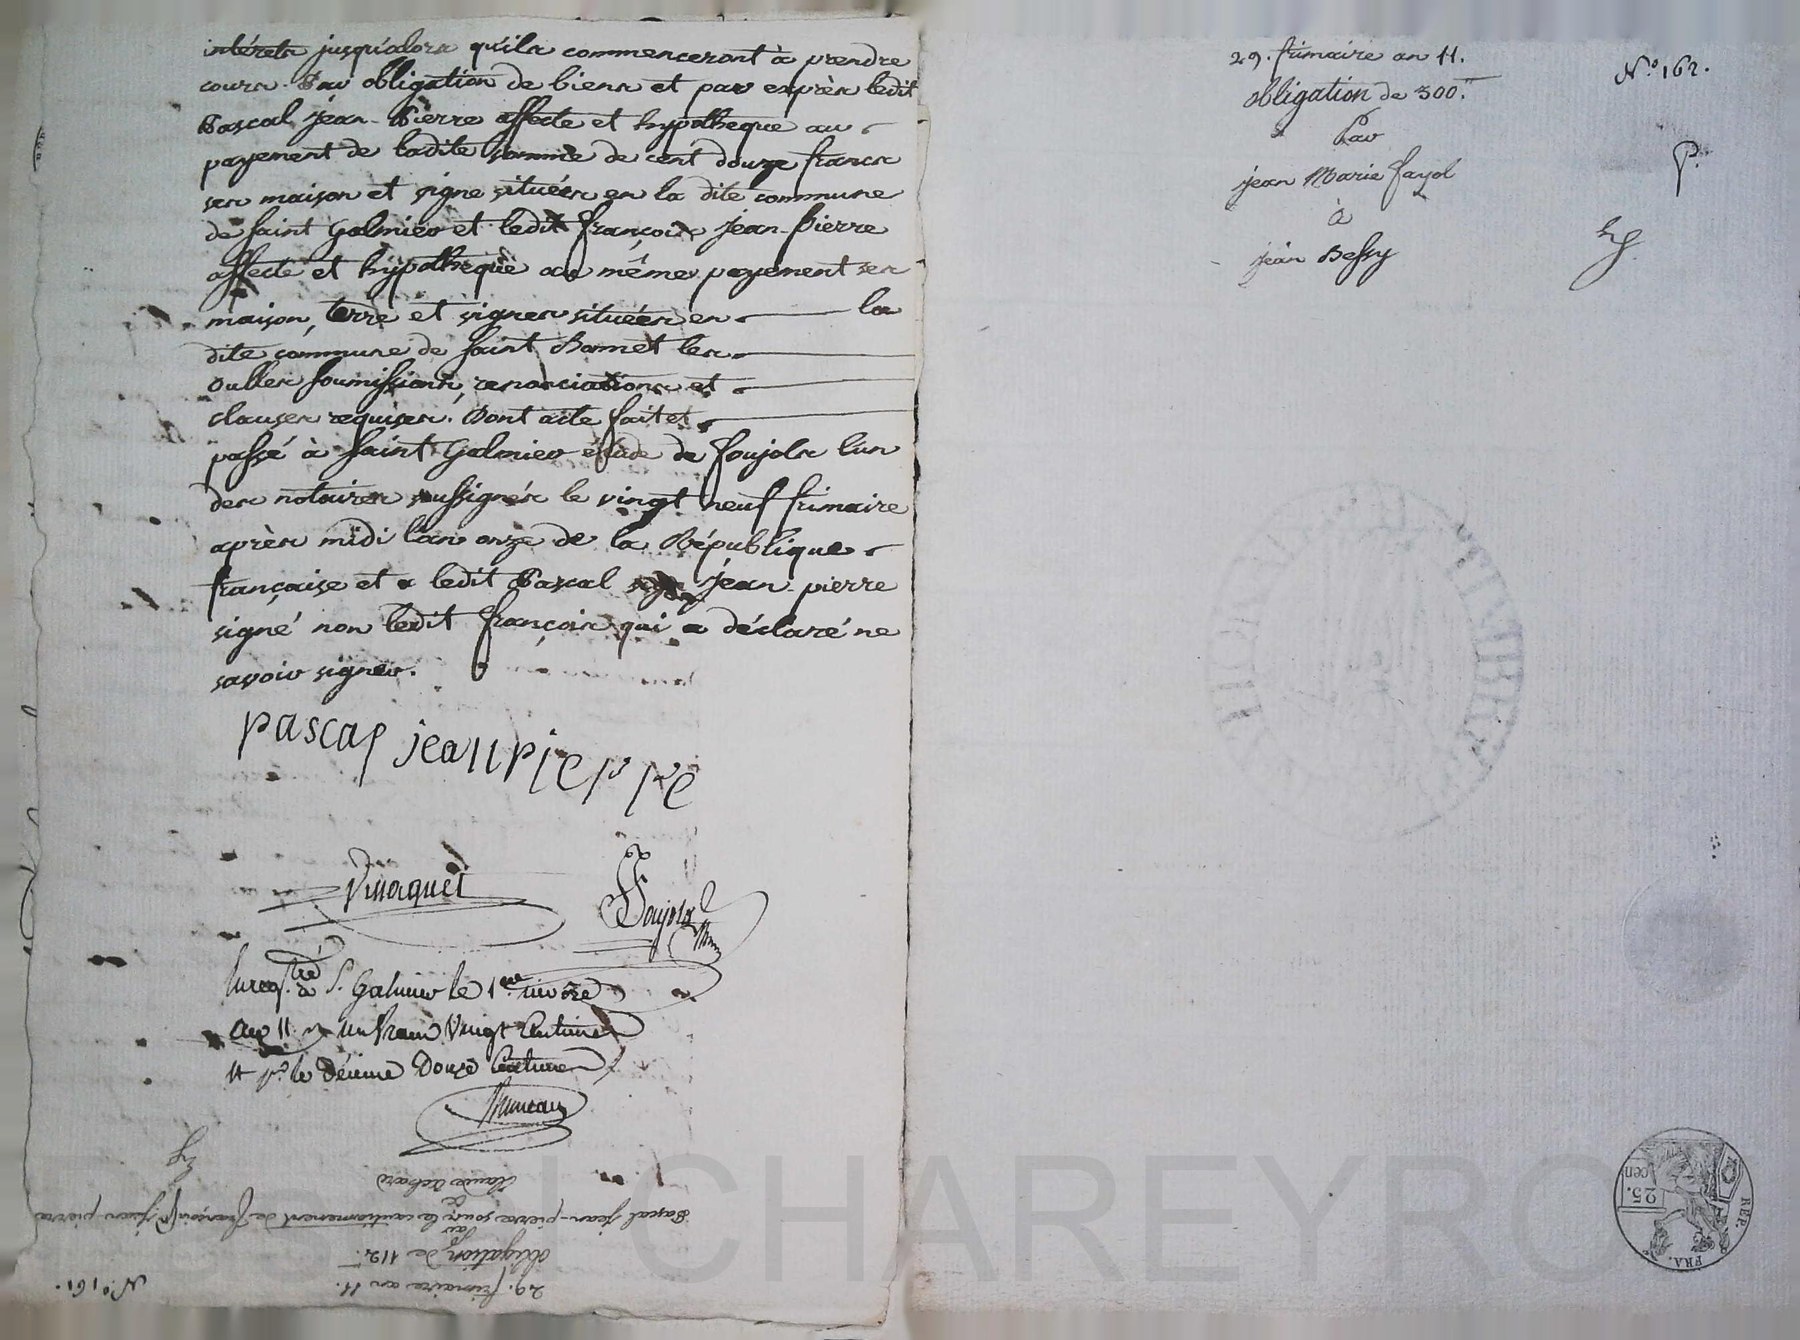 intérets jusqu'alors qu'ils commenceront à prendre
cours. Par obligation de biens et par exprès ledit
Pascal jean-Pierre affecte et hypotheque au
payement de ladite somme de cent douze francs
ses maison et vigne situées en la dite commune
de saint Galmier et ledit françois jean-pierre
affecte et hypotheque au même payement ses
maison, terre et vignes situées en la
dite commune de saint Bonnet les
oulles soumissions, renonciations et
clauses requises. Dont acte fait et
passé à saint Galmier étude de foujols l'un
des notaires soussignés le vingt neuf frimaire
après midi l'an onze de la République
française et a ledit Pascal jean-pierre
signé non ledit françois qui a déclaré ne
savoir signer.
pascal jean pierre
Vinaquet
Foujols
Enregt.tré à St. Galmier le 1er nivose
an 11. un franc Vingt Centimes
et pr. le décime Douze Centimes
29. frimaire an 11.
obligation de 112.
Par
Pascal jean-pierre sous le cautionement de françois jean-pierre
à
Claude
N.o 161.
29. frimaire an 11.
obligation de 300.
Par
jean Marie fayol
à
jean Bessy
N.o 162.
P.
REP. FRA.
25. cen
CHAREYRO